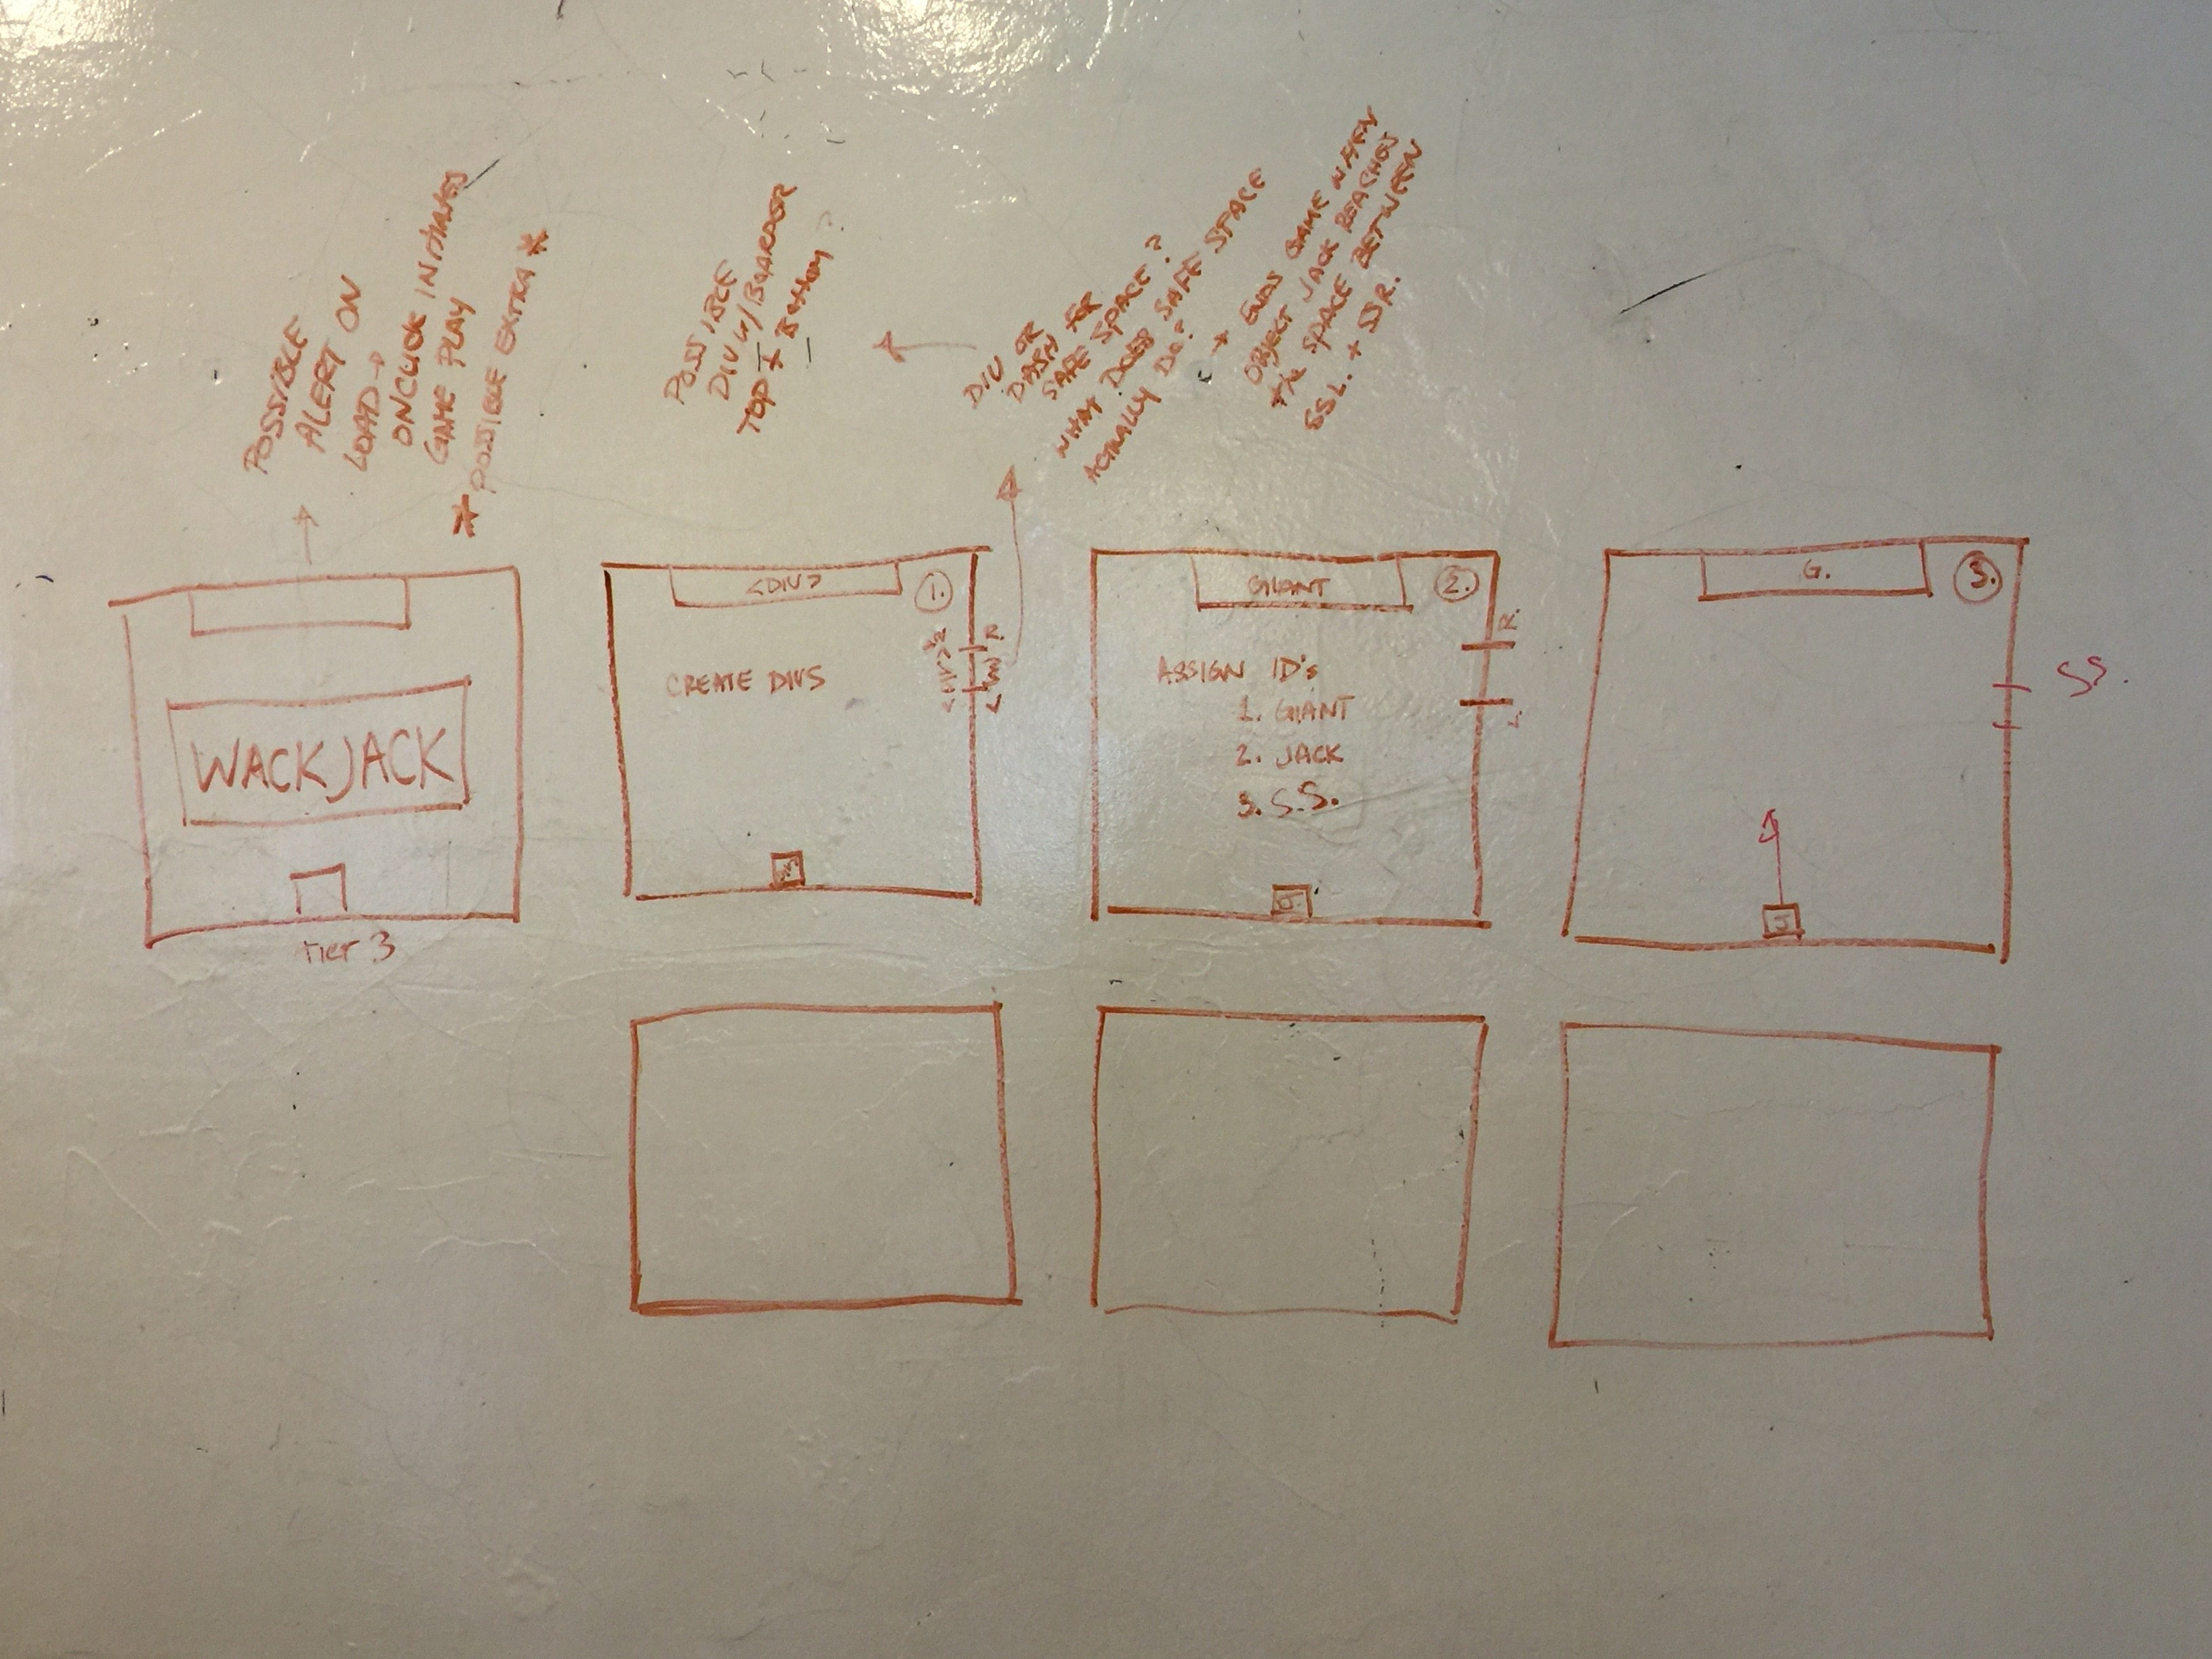 POSSIBLE
ALERT ON
LOAD →
ONCLICK INITIATES
GAME PLAY
* POSSIBLE EXTRA *
POSSIBLE
DIV W/ BOARDER
TOP + Bottom ?
DIV OR
DASH FOR
SAFE SPACE?
WHAT DOES SAFE SPACE
ACTUALLY DO?
→ ENDS GAME WHEN
OBJECT JACK REACHES
THE SPACE BETWEEN
SSL. + SSR.
WACKJACK
Tier 3
<DIV>
1.
R.
CREATE DIVS
GIANT
2.
R.
L.
ASSIGN ID's
1. GIANT
2. JACK
3. S.S.
J.
G.
3.
SS.
J